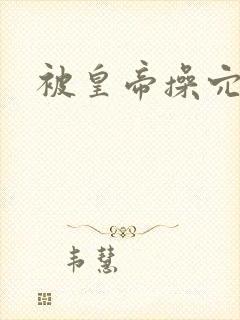 被皇帝操穴
韦慧